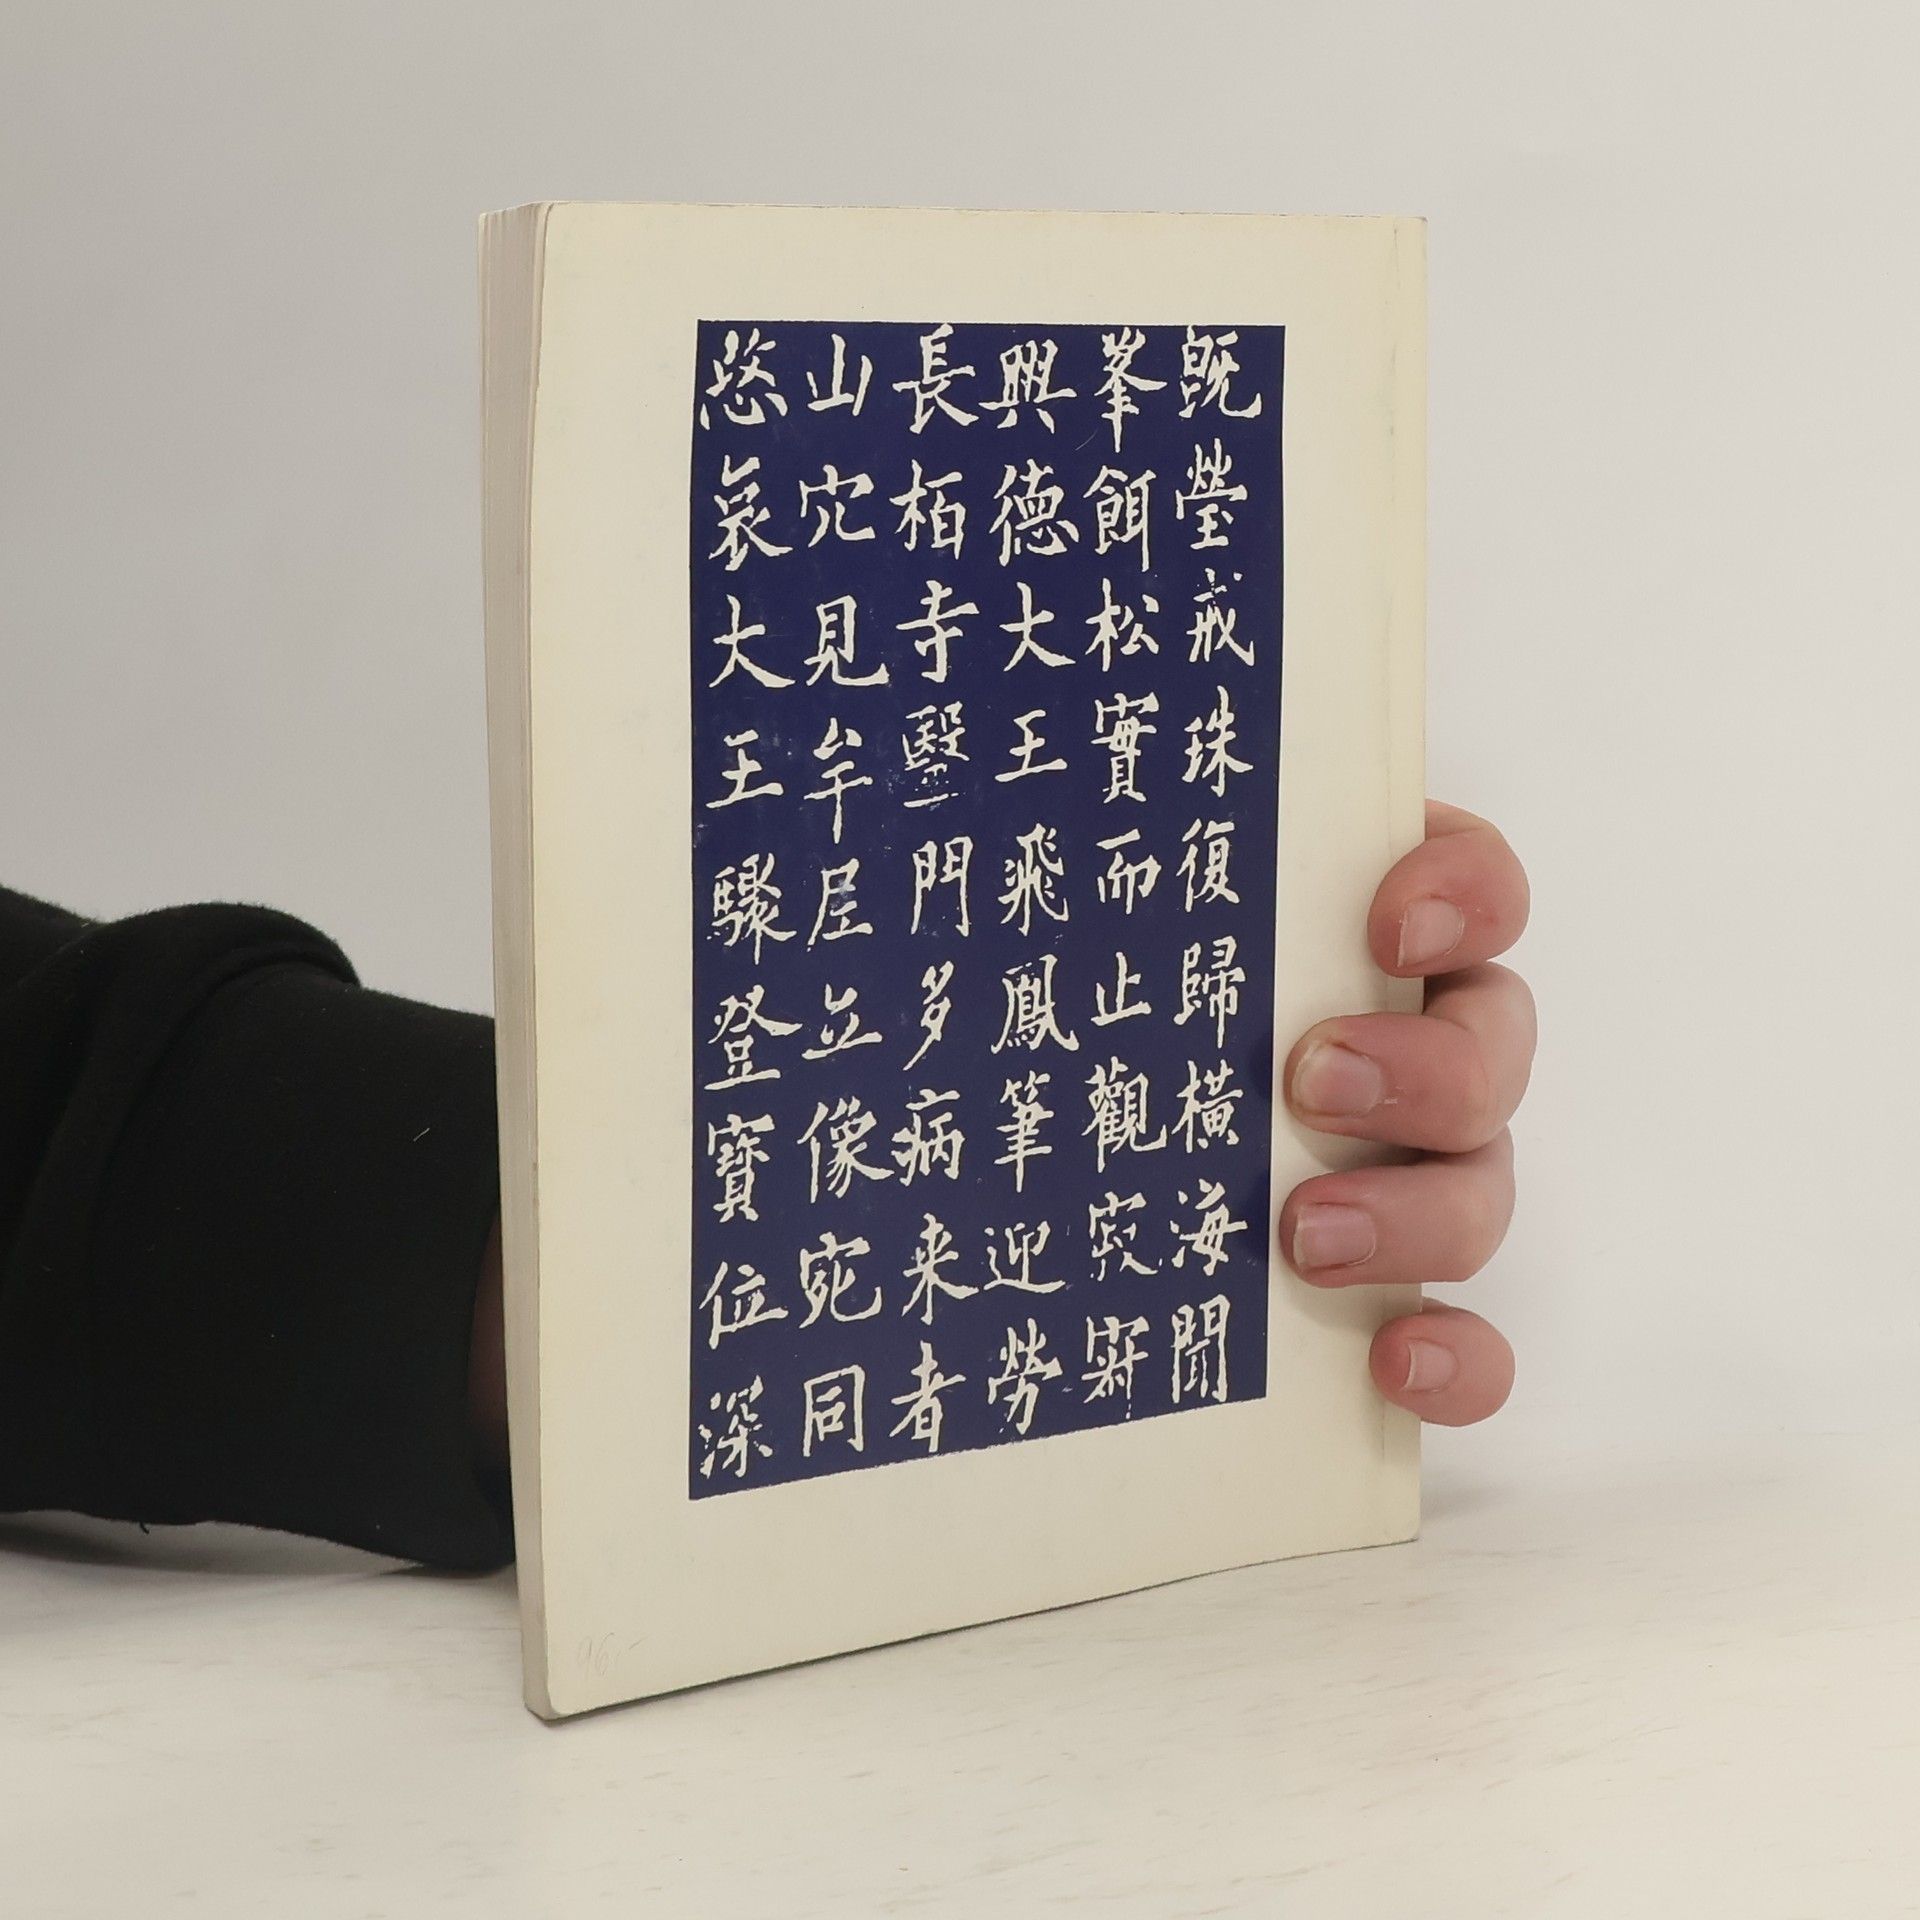 旣瑩戒珠復歸橫海聞
峯餌松實而止觀寂寂
興德大王飛鳳筆迎勞
長栢寺毉門多病来者
山穴見牟尼立像宛同
愍哀大王驟登寶位深
96,-